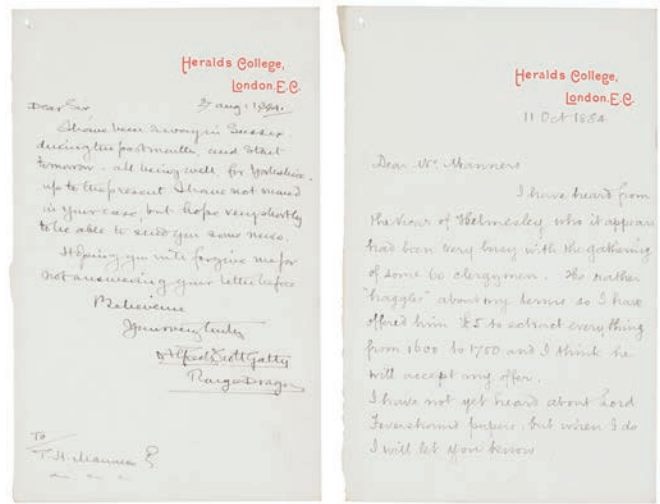 Heralds College,
London. E.C.
27 Aug. 1884.
Dear Sir
I have been away in Sussex
during the past month, and start
tomorrow - all being well, for Yorkshire.
up to the present I have not moved
in your case, but hope very shortly
to be able to send you some news.
Hoping you will forgive me for
not answering your letter before
Believe me
Yours very truly
Alfred Scott Gatty
Rouge Dragon
To
T. H. Manners
Heralds College,
London. E.C.
11 Oct 1884
Dear Mr. Manners
I have heard from
the vicar of Helmesley who it appears
had been very busy with the gathering
of some 60 clergymen. He rather
"haggles" about my terms so I have
offered him £5 to extract everything
from 1600 to 1750 and I think he
will accept my offer.
I have not yet heard about Lord
Feversham's papers, but when I do
I will let you know